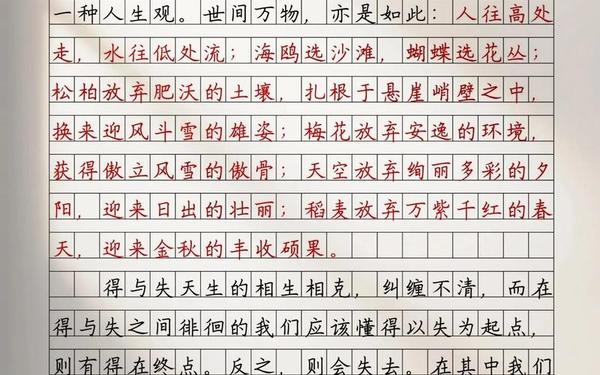 一种人生观。世间万物，亦是如此：人往高处
走，水往低处流；海鸥选沙滩，蝴蝶选花丛；
松柏放弃肥沃的土壤，扎根于悬崖峭壁之中，
换来迎风斗雪的雄姿；梅花放弃安逸的环境，
获得傲立风雪的傲骨；天空放弃绚丽多彩的夕
阳，迎来日出的壮丽；稻麦放弃万紫千红的春
天，迎来金秋的丰收硕果。
得与失天生的相生相克，纠缠不清，而在
得与失之间徘徊的我们应该懂得以失为起点，
则有得在终点。反之，则会失去。在其中我们